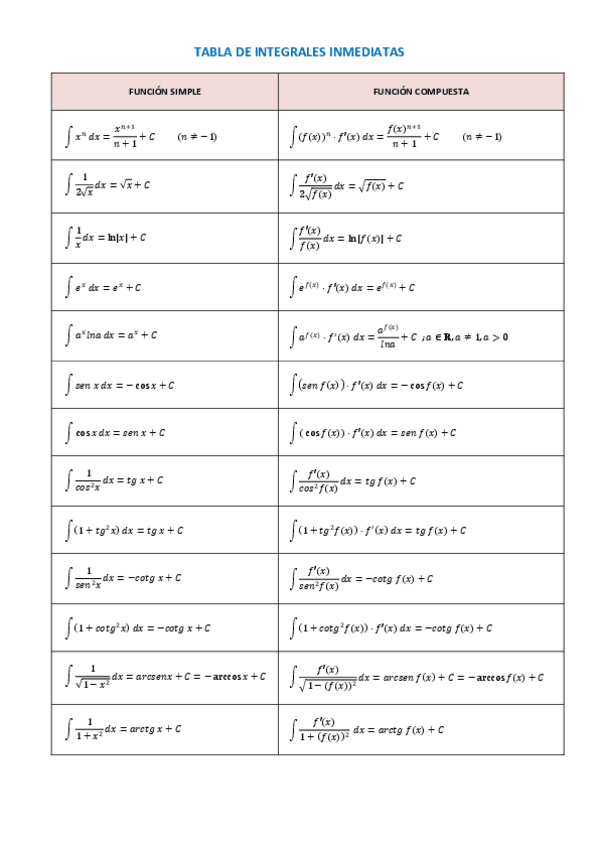 TABLA DE INTEGRALES INMEDIATAS
FUNCIÓN SIMPLE | FUNCIÓN COMPUESTA
∫ xⁿ dx = xⁿ⁺¹/(n + 1) + C (n ≠ −1) | ∫ (f(x))ⁿ · f′(x) dx = f(x)ⁿ⁺¹/(n + 1) + C (n ≠ −1)
∫ 1/(2√x) dx = √x + C | ∫ f′(x)/(2√f(x)) dx = √f(x) + C
∫ 1/x dx = ln|x| + C | ∫ f′(x)/f(x) dx = ln|f(x)| + C
∫ eˣ dx = eˣ + C | ∫ e^f(x) · f′(x) dx = e^f(x) + C
∫ aˣ lna dx = aˣ + C | ∫ a^f(x) · f′(x) dx = a^f(x)/lna + C ; a ∈ R, a ≠ 1, a > 0
∫ sen x dx = − cos x + C | ∫ (sen f(x)) · f′(x) dx = − cos f(x) + C
∫ cos x dx = sen x + C | ∫ ( cos f(x)) · f′(x) dx = sen f(x) + C
∫ 1/cos²x dx = tg x + C | ∫ f′(x)/cos²f(x) dx = tg f(x) + C
∫ (1 + tg²x) dx = tg x + C | ∫ (1 + tg²f(x)) · f′(x) dx = tg f(x) + C
∫ 1/sen²x dx = −cotg x + C | ∫ f′(x)/sen²f(x) dx = −cotg f(x) + C
∫ (1 + cotg²x) dx = −cotg x + C | ∫ (1 + cotg²f(x)) · f′(x) dx = −cotg f(x) + C
∫ 1/√(1 − x²) dx = arcsenx + C = −arccos x + C | ∫ f′(x)/√(1 − (f(x))²) dx = arcsen f(x) + C = −arccos f(x) + C
∫ 1/(1 + x²) dx = arctg x + C | ∫ f′(x)/(1 + (f(x))²) dx = arctg f(x) + C